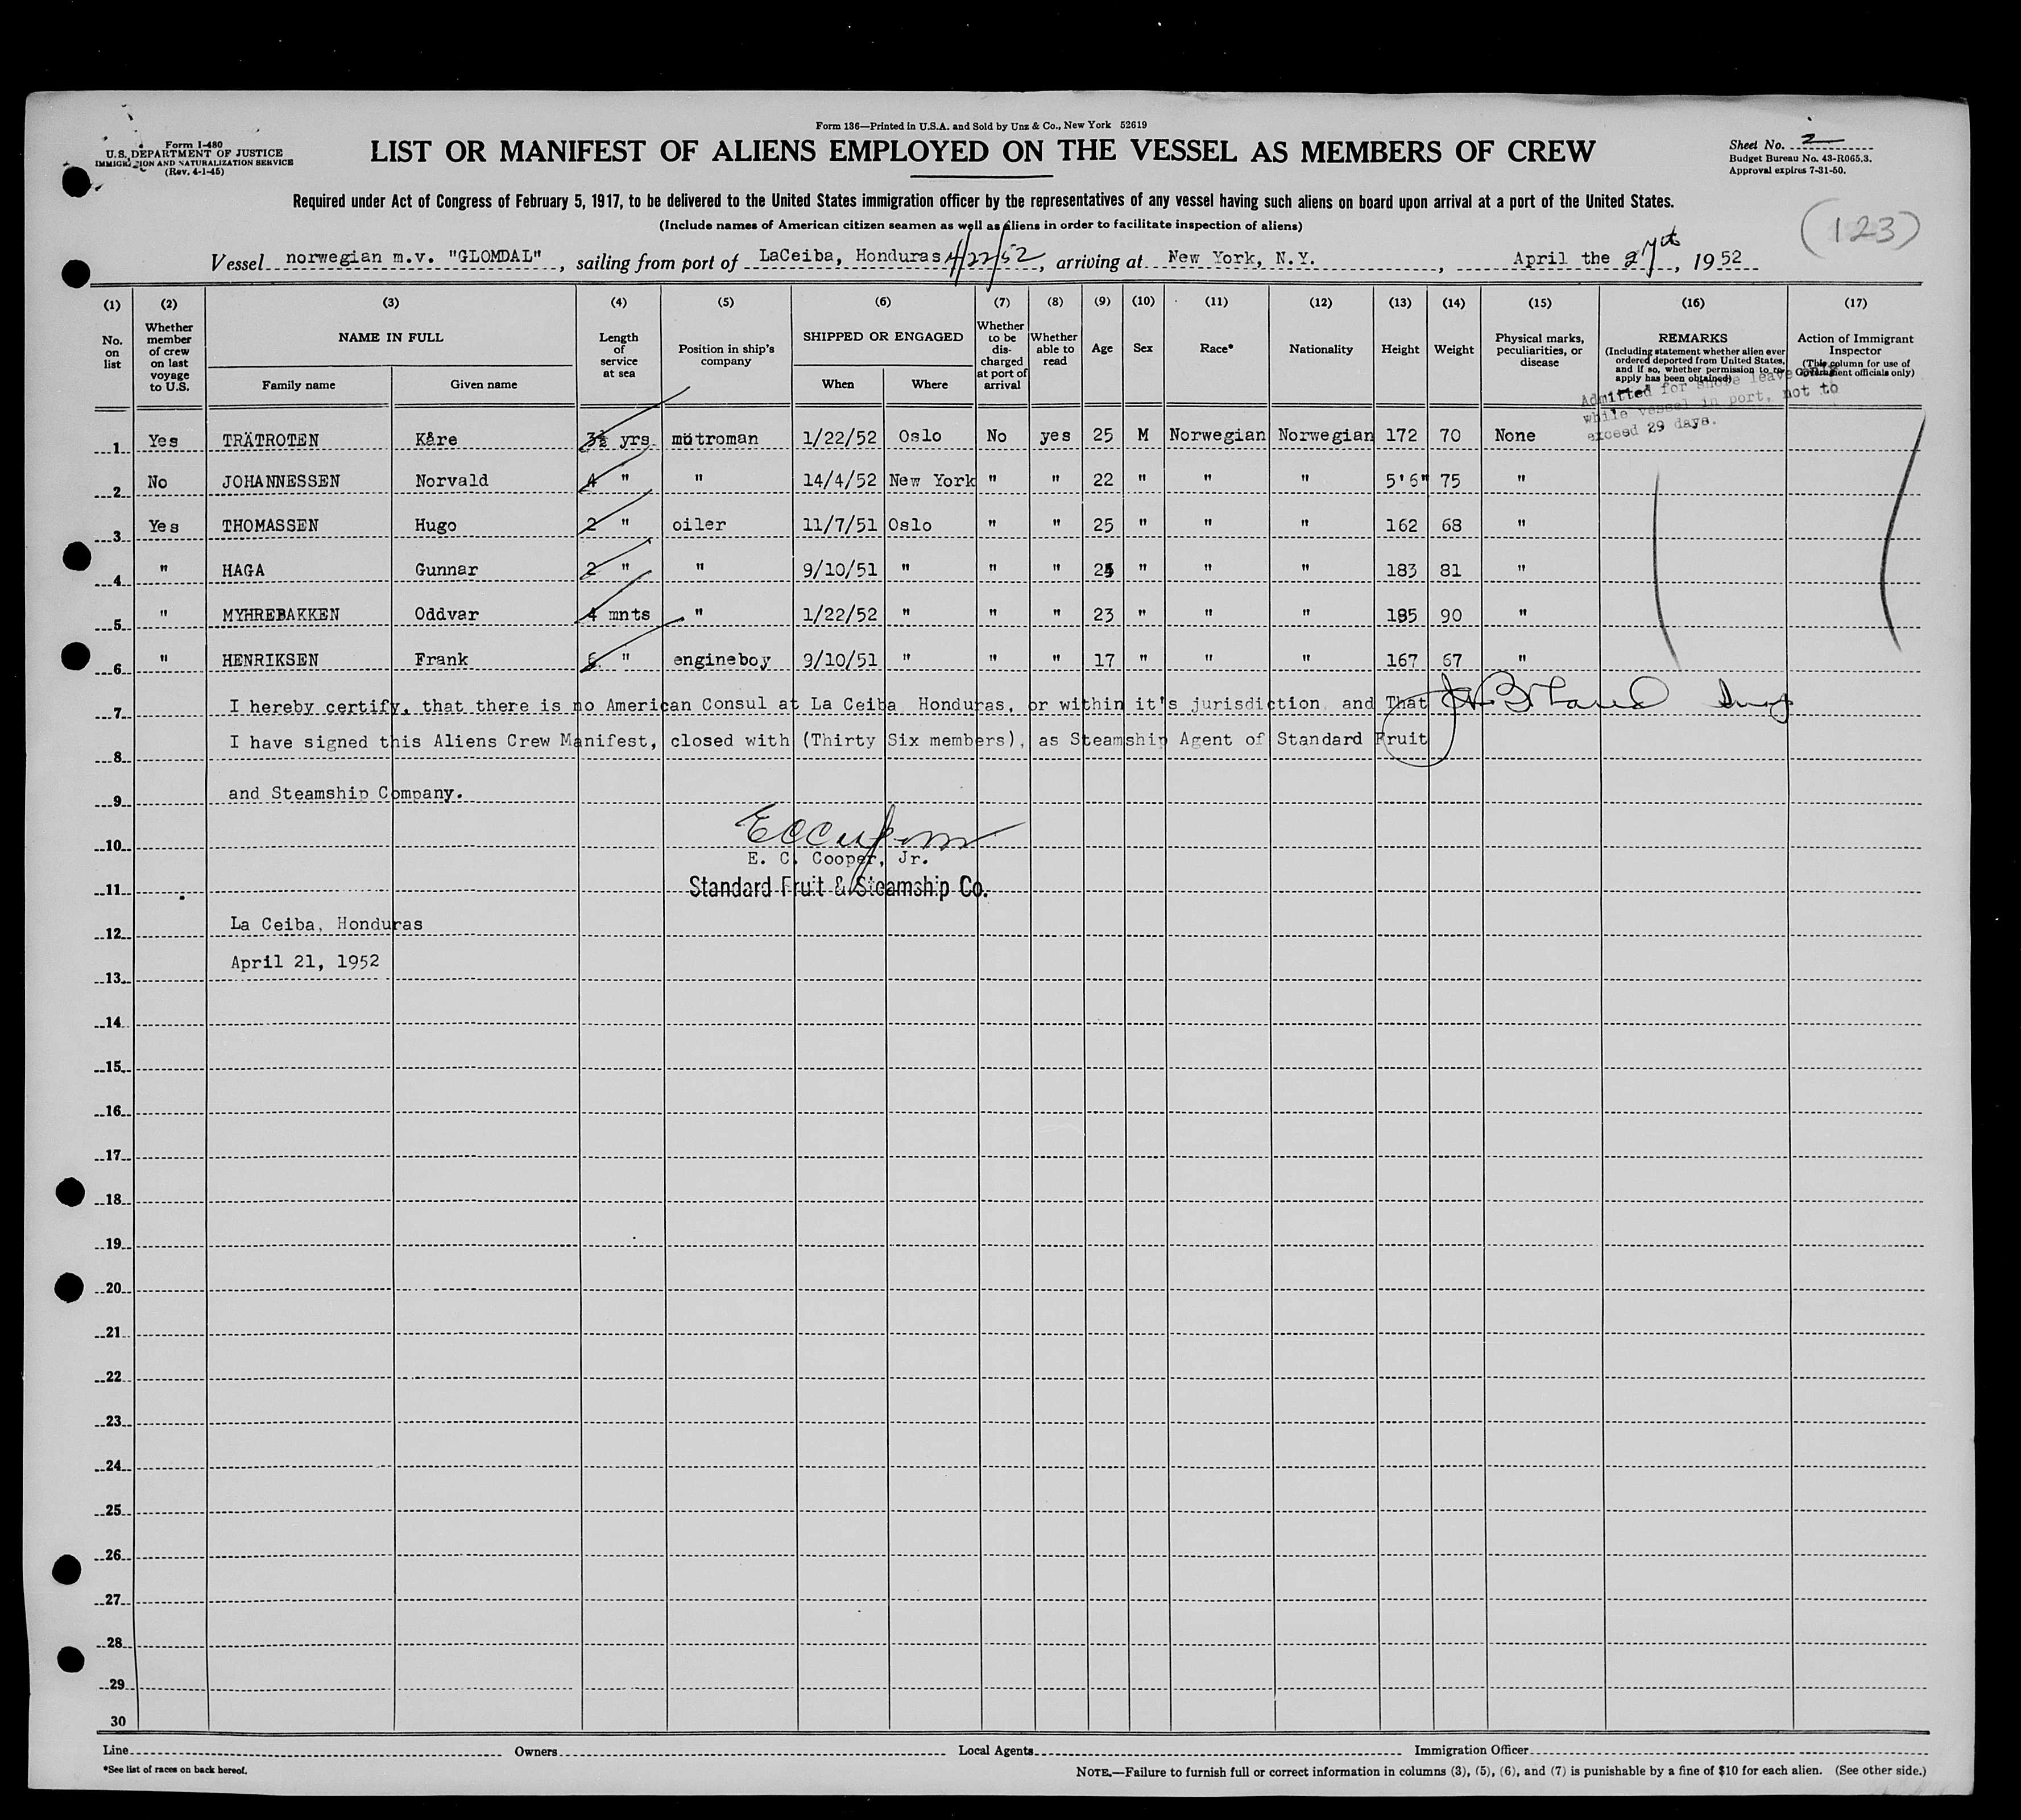 Form 136—Printed in U.S.A. and Sold by Unz & Co., New York 52619
Form I-480
U.S. DEPARTMENT OF JUSTICE
IMMIGRATION AND NATURALIZATION SERVICE
(Rev. 4-1-45)
LIST OR MANIFEST OF ALIENS EMPLOYED ON THE VESSEL AS MEMBERS OF CREW
Sheet No. 2
Budget Bureau No. 43-R065.3.
Approval expires 7-31-50.
Required under Act of Congress of February 5, 1917, to be delivered to the United States immigration officer by the representatives of any vessel having such aliens on board upon arrival at a port of the United States.
(Include names of American citizen seamen as well as aliens in order to facilitate inspection of aliens)
(123)
Vessel norwegian m.v. "GLOMDAL", sailing from port of LaCeiba, Honduras 4/22/52, arriving at New York, N.Y., April the 27th, 1952
(1) (2) (3) (4) (5) (6) (7) (8) (9) (10) (11) (12) (13) (14) (15) (16) (17)
No. on list
Whether member of crew on last voyage to U.S.
NAME IN FULL
Family name
Given name
Length of service at sea
Position in ship's company
SHIPPED OR ENGAGED
When
Where
Whether to be discharged at port of arrival
Whether able to read
Age
Sex
Race*
Nationality
Height
Weight
Physical marks, peculiarities, or disease
REMARKS
(Including statement whether alien ever ordered deported from United States, and if so, whether permission to re-apply has been obtained)
Action of Immigrant Inspector
(This column for use of Government officials only)
Admitted for shore leave only
while vessel in port, not to
exceed 29 days.
1 Yes TRÄTROTEN Kåre 3½ yrs motroman 1/22/52 Oslo No yes 25 M Norwegian Norwegian 172 70 None
2 No JOHANNESSEN Norvald 4 " " 14/4/52 New York " " 22 " " " 5'6" 75 "
3 Yes THOMASSEN Hugo 2 " oiler 11/7/51 Oslo " " 25 " " " 162 68 "
4 " HAGA Gunnar 2 " " 9/10/51 " " " 2 " " " 183 81 "
5 " MYHREBAKKEN Oddvar 4 mnts " 1/22/52 " " " 23 " " " 185 90 "
6 " HENRIKSEN Frank 6 " engineboy 9/10/51 " " " 17 " " " 167 67 "
7 I hereby certify, that there is no American Consul at La Ceiba Honduras, or within it's jurisdiction and That
8 I have signed this Aliens Crew Manifest, closed with (Thirty Six members), as Steamship Agent of Standard Fruit
9 and Steamship Company.
10 E. C. Cooper, Jr.
11 Standard Fruit & Steamship Co.
12 La Ceiba, Honduras
13 April 21, 1952
14
15
16
17
18
19
20
21
22
23
24
25
26
27
28
29
30
Line Owners Local Agents Immigration Officer
*See list of races on back hereof.
NOTE.—Failure to furnish full or correct information in columns (3), (5), (6), and (7) is punishable by a fine of $10 for each alien. (See other side.)